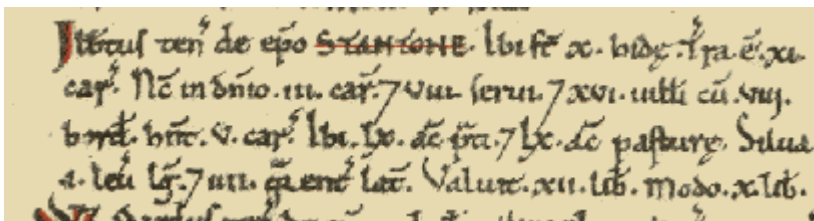 Ilbtus ten̉ de ep̄o STANTONE. Ibi ſt̄ x. hidę. Tr̉a .ē. xi.
car̉. Nc̄ in dn̄io .iii. car̉. ⁊ viii. ſerui. ⁊ xvi. uilli cū .viii.
bord. hn̄t .v. car̉. Ibi .lx. ac̄ p̄ti. ⁊ lx. ac̄ paſturę. Silua
.i. leủ lḡ. ⁊ iii. q̄rent̉ lat̄. Valuit .xii. lib̄. Modo .x. lib̄.